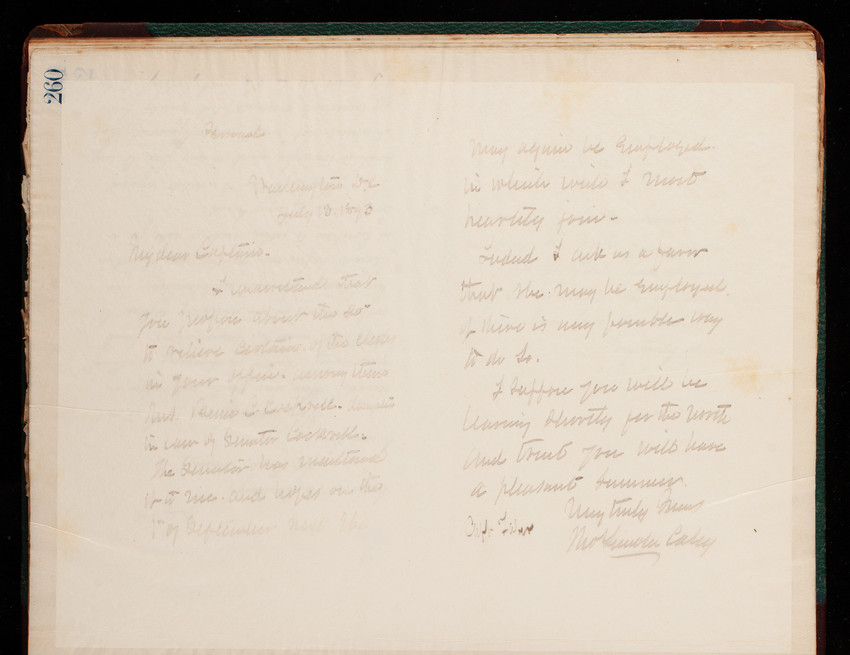 260
Personal
Washington DC
July 13. 1893
My dear Captain.
I understand that
you propose about the 20"
to relieve certain of the clerks
in your office. among them
Mrs. C Cockrell.
in law of Senator Cockrell.
The Senator has mentioned
it to me. and hopes on the
1" of September next she
may again be employed.
in which wish I most
heartily join -
Indeed I ask as a favor
that she may be employed.
if there is any possible way
to do so.
I suppose you will be
leaving shortly for the North
and trust you will have
a pleasant summer.
Very truly Yours
Thos Lincoln Casey
Capt